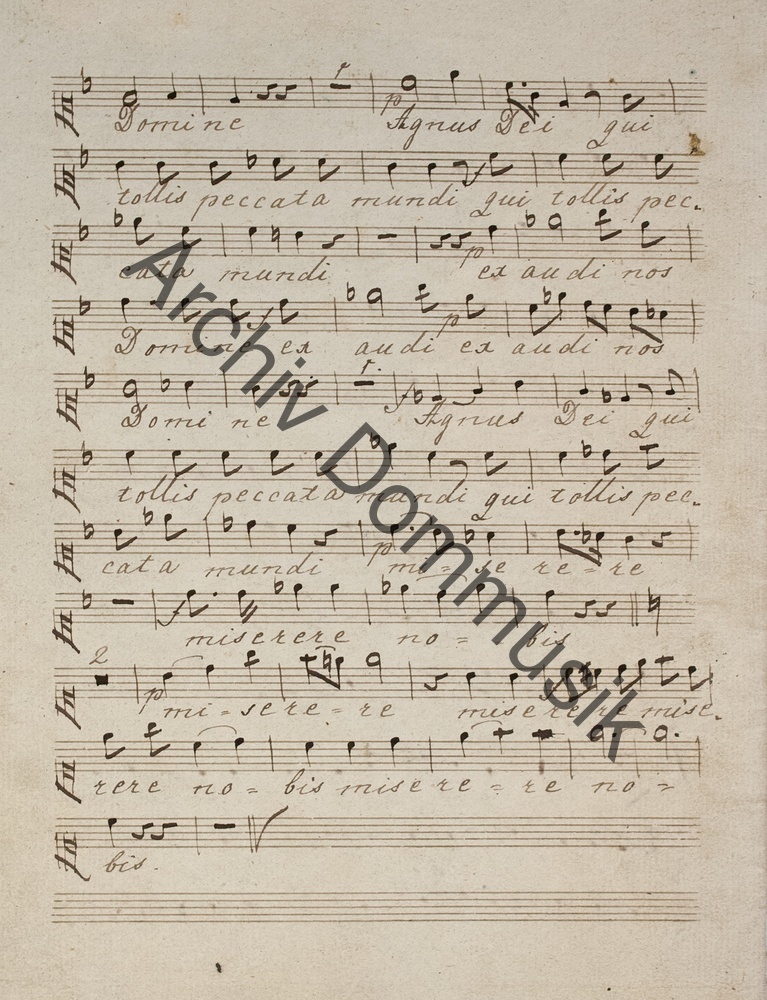 Domine Agnus Dei qui
tollis peccata mundi qui tollis pec-
cata mundi ex audi nos
Domine ex audi ex audi nos
Domi ne Agnus Dei qui
tollis peccata mundi qui tollis pec-
cata mundi mi - se re = re
miserere no = bis
2
mi - se re = re miserere mise-
rere no = bis mise re = re no =
bis.
Archiv Dommusik